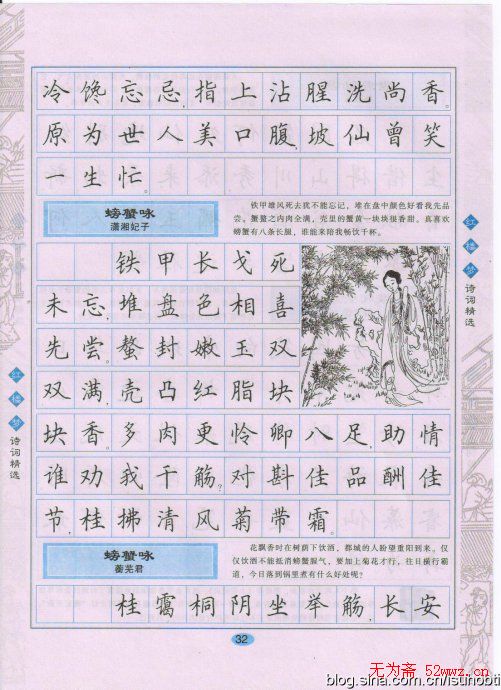 冷馋忘忌,指上沾腥洗尚香。
原为世人美口腹,坡仙曾笑
一生忙。
螃蟹咏
潇湘妃子
铁甲雄风死去犹不能忘记,堆在盘中颜色好看我先品
尝。蟹螯之内肉全满,壳里的蟹黄一块块很香甜。真喜欢
螃蟹有八条长腿,谁能来陪我畅饮千杯。
铁甲长戈死
未忘,堆盘色相喜
先尝。螯封嫩玉双
双满,壳凸红脂块
块香。多肉更怜卿八足,助情
谁劝我千觞?对斟佳品酬佳
节,桂拂清风菊带霜。
螃蟹咏
蘅芜君
花飘香时在树荫下饮酒,都城的人盼望重阳到来。仅
仅饮酒不能抵消螃蟹腥气,要加上菊花才行,往日横行霸
道,今日落到锅里煮有什么好处呢?
桂霭桐阴坐举觞,长安
32
红楼梦
诗词精选
红楼梦
诗词精选
无为斋 52wwz.cn
blog.sina.com.cn/isunobu